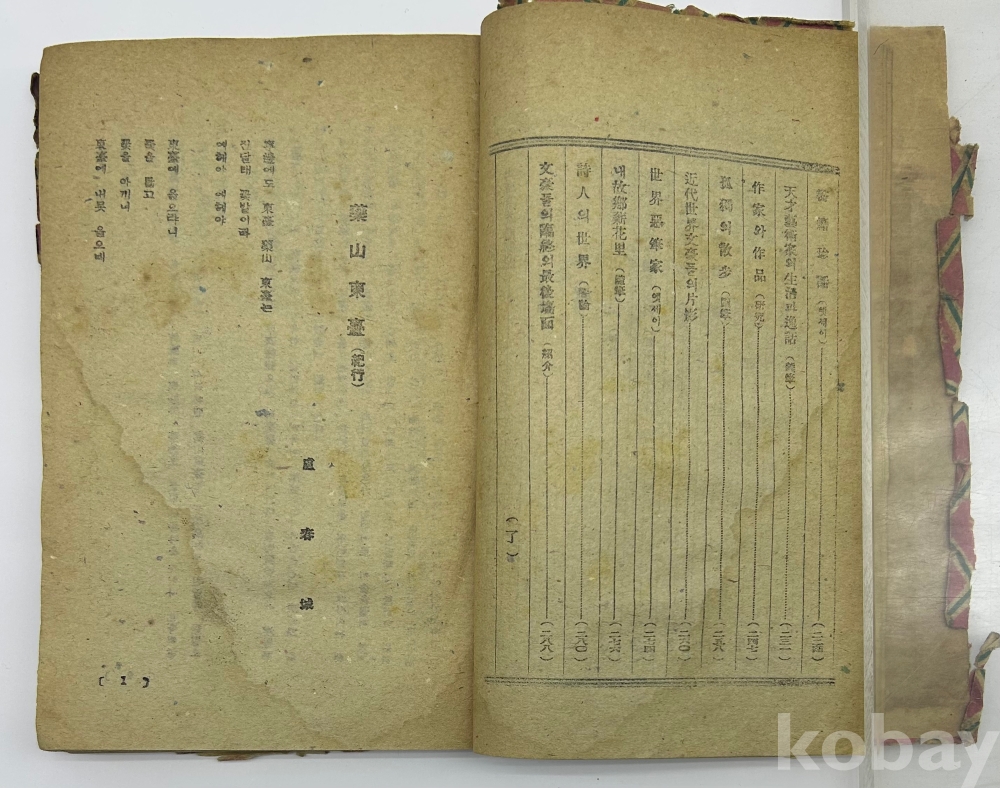 天才藝術家의 生活과 逸話 (隨筆) (二三一)
作家와 作品 (研究) (二四七)
孤獨의 散步 (隨筆) (二五八)
近代世界文豪들의 片影 (二六〇)
世界惡妻家 (엣세이)
내故鄕新花里 (隨筆) (二七六)
詩人의 世界 (詩論) (二八〇)
文豪들의 臨終의 最後場面 (紹介) (二八八)
藥山東臺 (紀行)
盧春城
東臺 藥山 東臺는
진달래 꽃밭이라
에헤야 에헤야
東臺에 올으랴니
꽃을 밟고
꽃을 아끼니
東臺에 내못 올으리
[ 1 ]
kobay